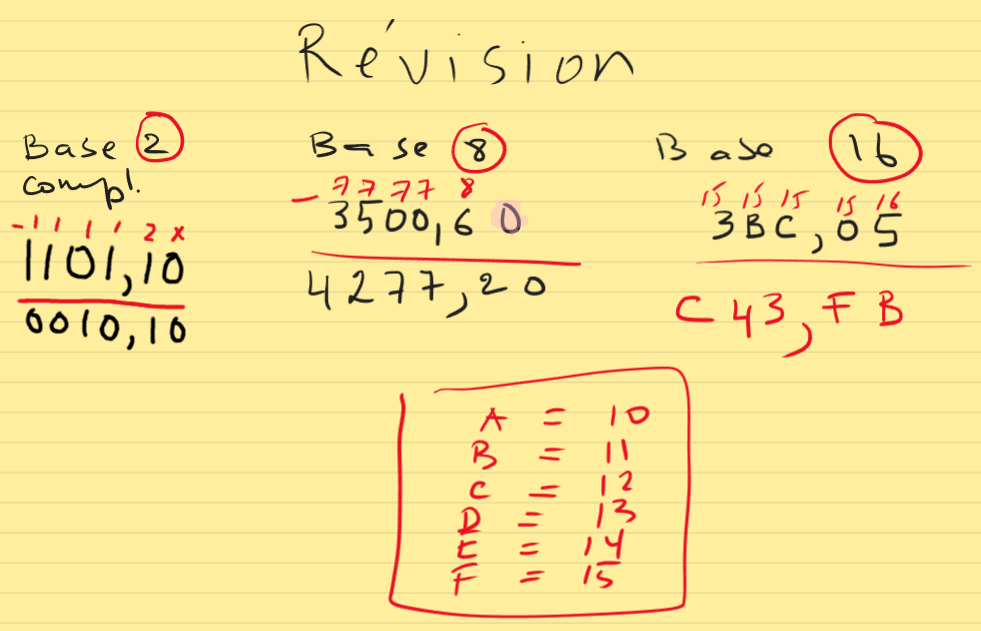 Révision
Base 2
compl.
- 1 1 1 1 2 x
1101,10
0010,10
Base 8
- 7 7 7 7 8
3500,60
4277,20
Base 16
15 15 15 15 16
3BC,05
C43,FB
A = 10
B = 11
C = 12
D = 13
E = 14
F = 15